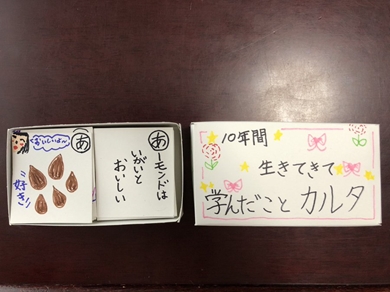 あ
おいしいよ〜
"好き"
あーモンドは
いがいと
おいしい
10年間
生きてきて
学んだこと カルタ